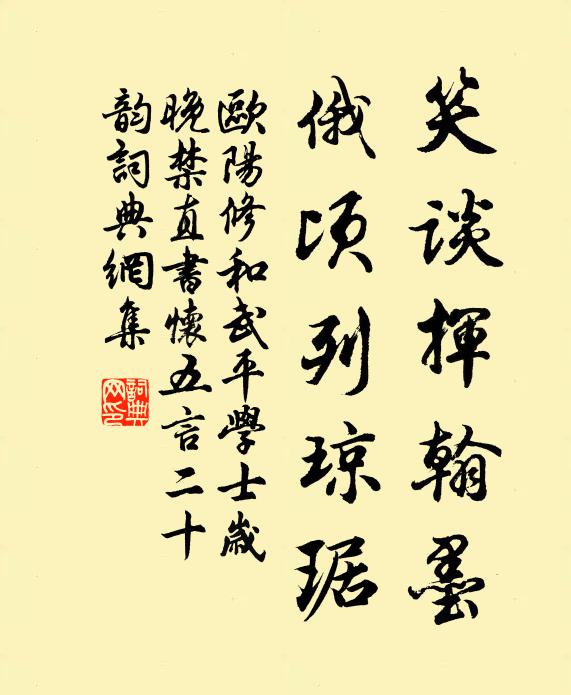 笑谈揮翰墨
俄顷列琼琚
歐陽修和武平學士歲
晚禁直書懷五言二十
韵詞典網集
詞典网印